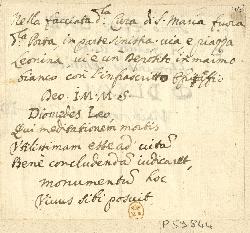 Nella facciata d. Cura di S. Maria fuora
d. Porta in parte sinistra via e piazza
Leonina, vi è un Deposito in marmo
bianco con l'infrascritto
Deo. I. M. M. S.
Diomedes Leo
Qui meditationem mortis
Utilissimam esse ad vitam
Bene concludendam iudicavit,
monumentum hoc
Vivus sibi posuit
P53844